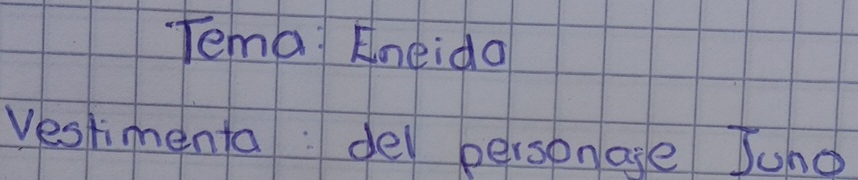 Tema: Eneida
Vestimenta: del personaje Juno